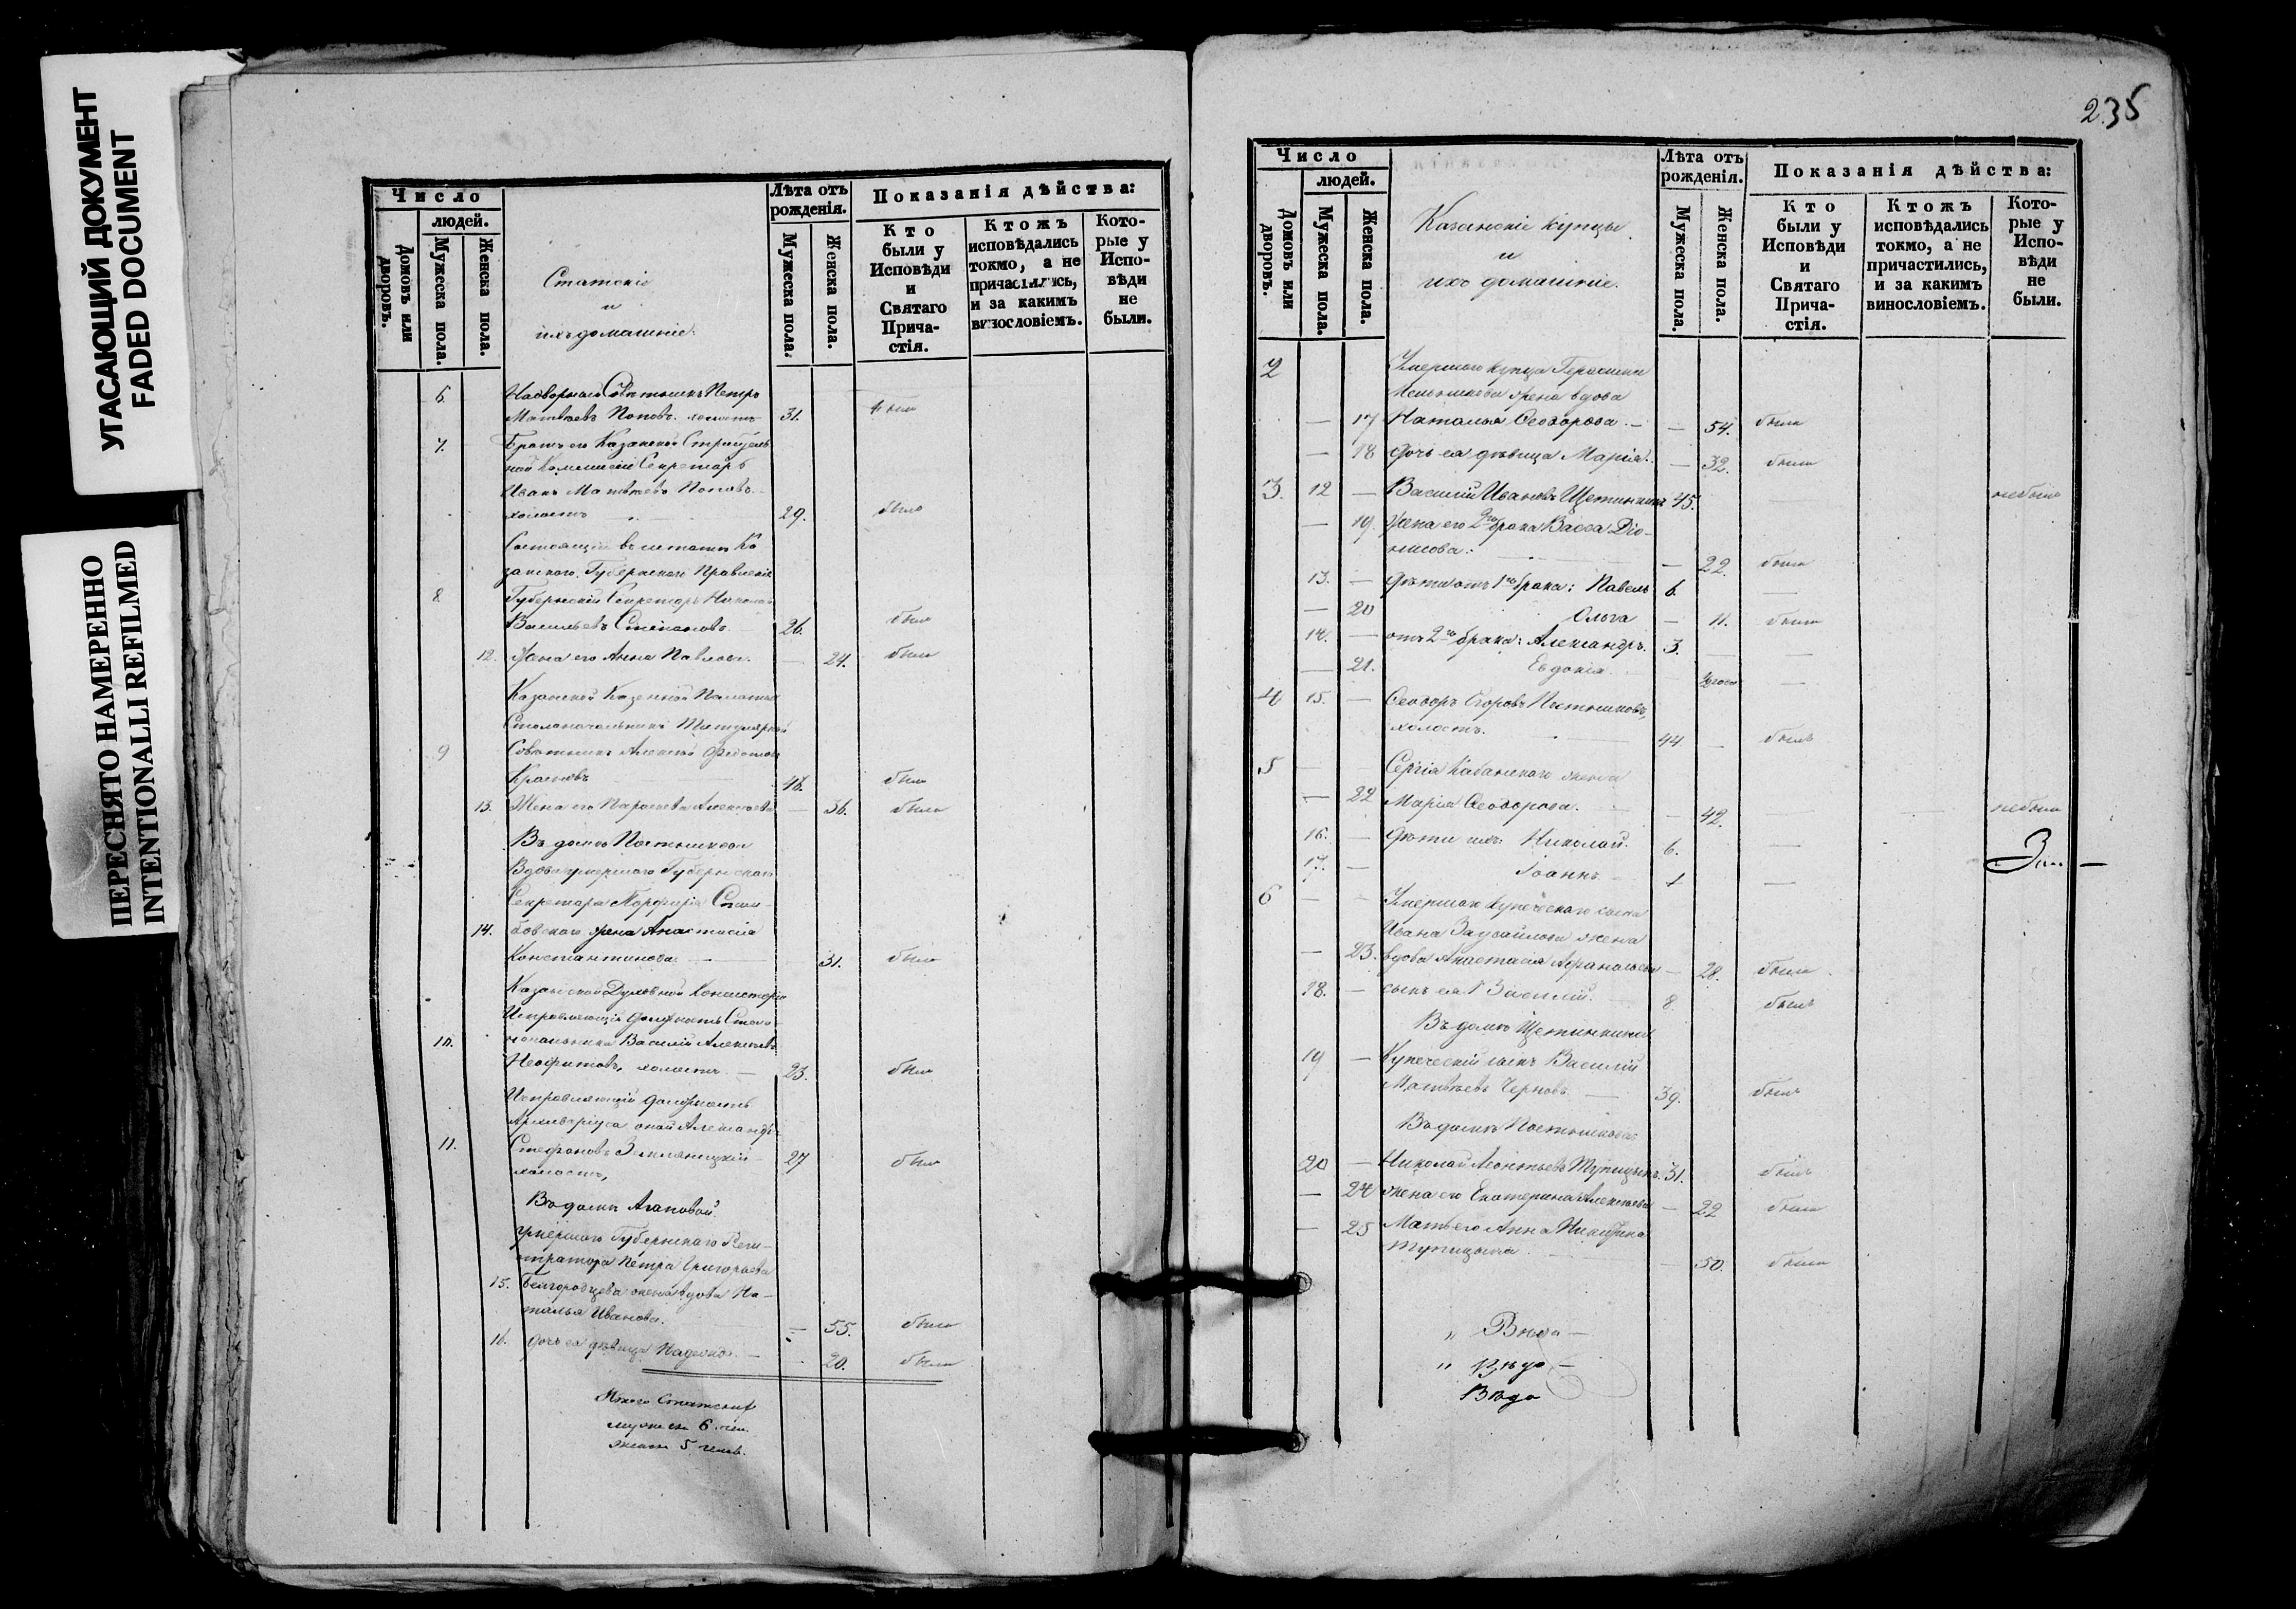 УГАСАЮЩИЙ ДОКУМЕНТ
FADED DOCUMENT
ПЕРЕСНЯТО НАМЕРЕННО
INTENTIONALLI REFILMED
Число
людей.
Домовъ или дворовъ.
Мужеска пола.
Женска пола.
Статскіе
и
ихъ домашніе.
Лѣта отъ рожденія.
Мужеска пола.
Женска пола.
Показанія дѣйства:
Кто были у Исповѣди и Святаго Причастія.
Ктожъ исповѣдались токмо, а не причастились, и за какимъ винословіемъ.
Которые у Исповѣди не были.
6. Надворный Совѣтникъ Петръ
Матвѣевъ Поповъ. холостъ 31. былъ
7. Братъ его Казанской Строитель
ной Коммисіи Секретарь
Иванъ Матвѣевъ Поповъ
холостъ 29. былъ
Состоящій въ штатѣ Ка
занскаго Губернскаго Правленія
8 Губернскій Секретарь Николай
Васильевъ Степановъ 26. былъ
12. Жена его Анна Павлова. — 24. была
Казанской Казенной Палаты
Столоначальникъ Титулярный
9 Совѣтникъ Алексѣй
Красновъ 48. былъ
13. Жена его Параскева Алексѣева — 36. была
Въ домѣ Постникова
Вдова умершаго Губернскаго
Секретаря Порфирія
14. жена Анастасія
Константинова — 31. была
Казанской Духовной Консисторіи
Исправляющій должность Столо-
10. начальника Василій Алексѣевъ
Неофитовъ, холостъ — 23. былъ
Исправляющій должность
Архиваріуса оной Александръ
11. Стефановъ Земляницкій 27 былъ
холостъ,
Въ домѣ Агаповой.
умершаго Губернскаго Реги-
стратора Петра Григорьева
15. Белгородцева жена вдова На-
талья Иванова. — 55. была
16. дочь ея дѣвица Надежда. — 20. была
Итого Статскихъ
мужеск 6 чел.
женск 5 челов.
235
Число
людей.
Домовъ или дворовъ.
Мужеска пола.
Женска пола.
Казанскіе купцы
и
ихъ домашніе.
Лѣта отъ рожденія.
Мужеска пола.
Женска пола.
Показанія дѣйства:
Кто были у Исповѣди и Святаго Причастія.
Ктожъ исповѣдались токмо, а не причастились, и за какимъ винословіемъ.
Которые у Исповѣди не были.
2 Умершаго купца Герасима
Мельникова жена вдова
— 17 Наталья Ѳеодорова. — — 54. была
— 18 дочь ея дѣвица Марія. — 32. была
3. 12 — Василій Ивановъ Щетинкинъ 45. небылъ
— 19. Жена его 2го брака Васса Діо-
нисова. — 22. была
13. — Дѣти отъ 1го брака: Павелъ 6. —
— 20 Ольга — 11. была
14. — отъ 2го брака: Александръ. 3. —
— 21. Евдокія —
4 15. — Ѳеодоръ Егоровъ Постниковъ,
холостъ. 44 — былъ
5 — — Сергія Кабанскаго жена
— 22 Марія Ѳеодорова. — 42. — небыла
16. — Дѣти ихъ: Николай. 6. —
17. — Іоаннъ. 1 —
6 — — Умершаго купеческаго сына
Ивана Заусайлова жена
— 23. вдова Анастасія — 28. была
18. — сынъ ея Василій. 8. былъ
Въ домѣ Щетинкина
19 — Купеческій сынъ Василій
Матвѣевъ Черновъ. — 39. былъ
Въ домѣ Постникова
20 — Николай Леонтьевъ Тупицынъ. 31. былъ
— 24 жена его Екатерина Алексѣева — 22 была
— 25 Мать его Анна Никитина
Тупицына — 50. была